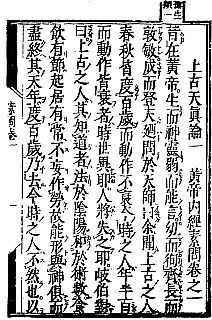 上古天真論一　黃帝內經素問卷之一
昔在黃帝生而神靈弱而能言幼而徇齊長而
敦敏成而登天廼問於天師曰余聞上古之人
春秋皆度百歲而動作不衰今時之人年半百
而動作皆衰者時世異耶人將失之耶岐伯對
曰上古之人其知道者法於陰陽和於術數食
飲有節起居有常不妄作勞故能形與神俱而
盡終其天年度百歲乃去今時之人不然也以